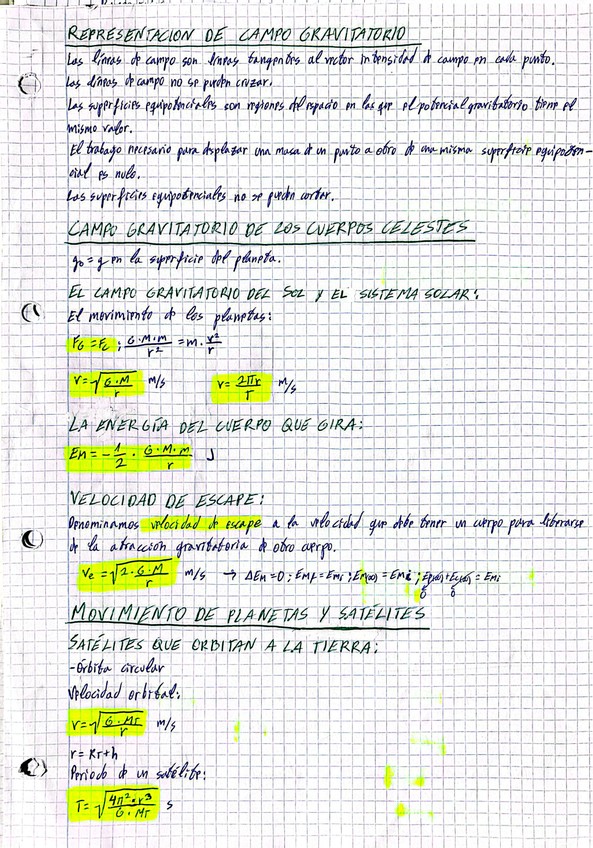 REPRESENTACION DE CAMPO GRAVITATORIO
Las líneas de campo son líneas tangentes al vector intensidad de campo en cada punto.
Las líneas de campo no se pueden cruzar.
Las superficies equipotenciales son regiones del espacio en las que el potencial gravitatorio tiene el
mismo valor.
El trabajo necesario para desplazar una masa de un punto a otro de una misma superficie equipoten-
cial es nulo.
Las superficies equipotenciales no se pueden cortar.
CAMPO GRAVITATORIO DE LOS CUERPOS CELESTES
g₀ = g en la superficie del planeta.
EL CAMPO GRAVITATORIO DEL SOL Y EL SISTEMA SOLAR:
El movimiento de los planetas:
F_G = F_c ; G·M·m / r² = m · v² / r
v = √(G·M / r) m/s   v = 2πr / T m/s
LA ENERGÍA DEL CUERPO QUE GIRA:
Em = - 1/2 · G·M·m / r J
VELOCIDAD DE ESCAPE:
Denominamos velocidad de escape a la velocidad que debe tener un cuerpo para liberarse
de la atracción gravitatoria de otro cuerpo.
Ve = √(2·G·M / r) m/s → ΔEm = 0 ; Emf = Emi ; Em(∞) = Emi ; Ep(∞) + Ec(∞) = Emi
0 0
MOVIMIENTO DE PLANETAS Y SATÉLITES
SATÉLITES QUE ORBITAN A LA TIERRA:
-Órbita circular
Velocidad orbital:
v = √(G·MT / r) m/s
r = RT + h
Periodo de un satélite:
T = √(4π²·r³ / G·MT) s